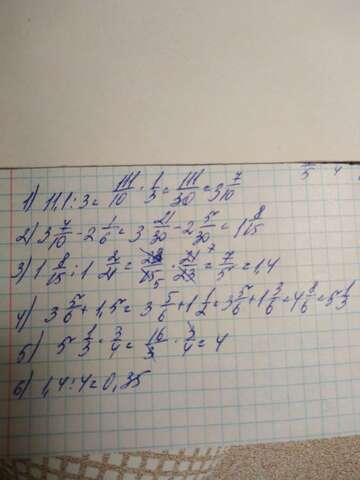 5 4
1) 11,1 : 3 = 111/10 · 1/3 = 111/30 = 3 7/10
2) 3 7/10 - 2 1/6 = 3 21/30 - 2 5/30 = 1 8/15
3) 1 8/15 : 1 2/21 = 23/15 · 21/23 = 7/5 = 1,4
4) 3 5/6 + 1,5 = 3 5/6 + 1 1/2 = 3 5/6 + 1 3/6 = 4 8/6 = 5 1/3
5) 5 1/3 · 3/4 = 16/3 · 3/4 = 4
6) 1,4 : 4 = 0,35